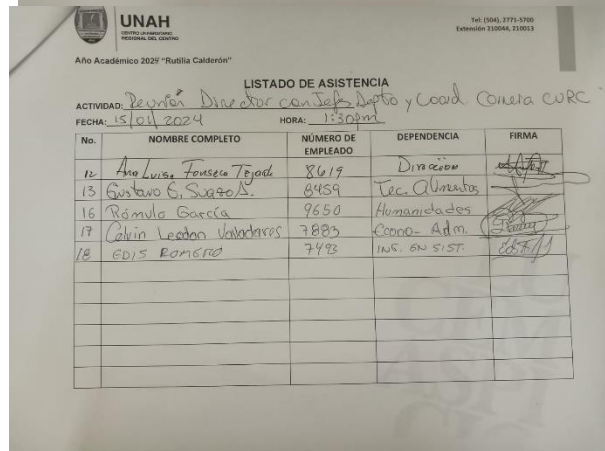 UNAH
CENTRO UNIVERSITARIO
REGIONAL DEL CENTRO
Tel: (504), 2771-5700
Extensión 210044, 210013
Año Académico 2025 "Rutilia Calderón"
LISTADO DE ASISTENCIA
ACTIVIDAD: Reunión Director con Jefes Depto y Coord. Carrera CURC
FECHA: 15/01/2024 HORA: 1:30pm
No. NOMBRE COMPLETO NÚMERO DE EMPLEADO DEPENDENCIA FIRMA
12 Ana Luisa Fonseca Tejada 8619 Dirección
13 Gustavo E. Suazo 8459 Tec. Alimentos
16 Rómulo García 9650 Humanidades
17 Calvin Valladares 7883 Econo- Adm.
18 EDIS ROMERO 7493 ING. EN SIST.